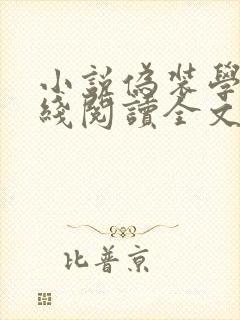 小説偽裝學
綫閱讀全文
比普京